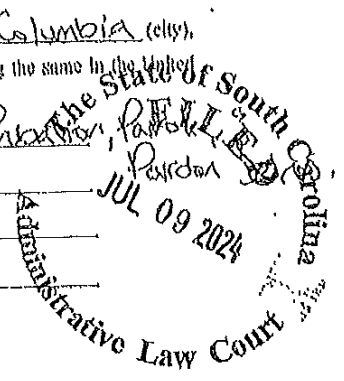 Columbia (city),
the same in the United
The State of South Carolina
Pardon
FILED
JUL 09 2024
Administrative Law Court